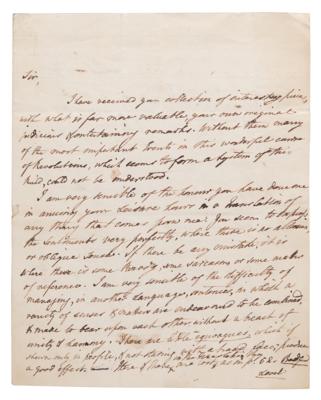 Sir,
I have received your collection of interesting pieces,
with what is far more valuable your own original
judicious & entertaining remarks. Without them many
of the most important Events in this wonderful
of Revolutions, which seems to form a System of this
kind, could not be understood.
I am very sensible of the honour you have done me
in amusing your Leisure hours in a translation of
any thing that comes from me: You seem to
the Sentiments very perfectly, where there is no allusion
or oblique Sense. If there be any mistake, it is
where there is some Irony, some sarcasm or some mode
of reference. I am very sensible of the difficulty of
managing, in another Language, sentences, in which a
variety of senses & matter are endeavoured to be combined
& made to bear upon each other without a breach of
unity & harmony. There are able equivoques, which if
shewn only in profile, & not
a good effect. — Here I